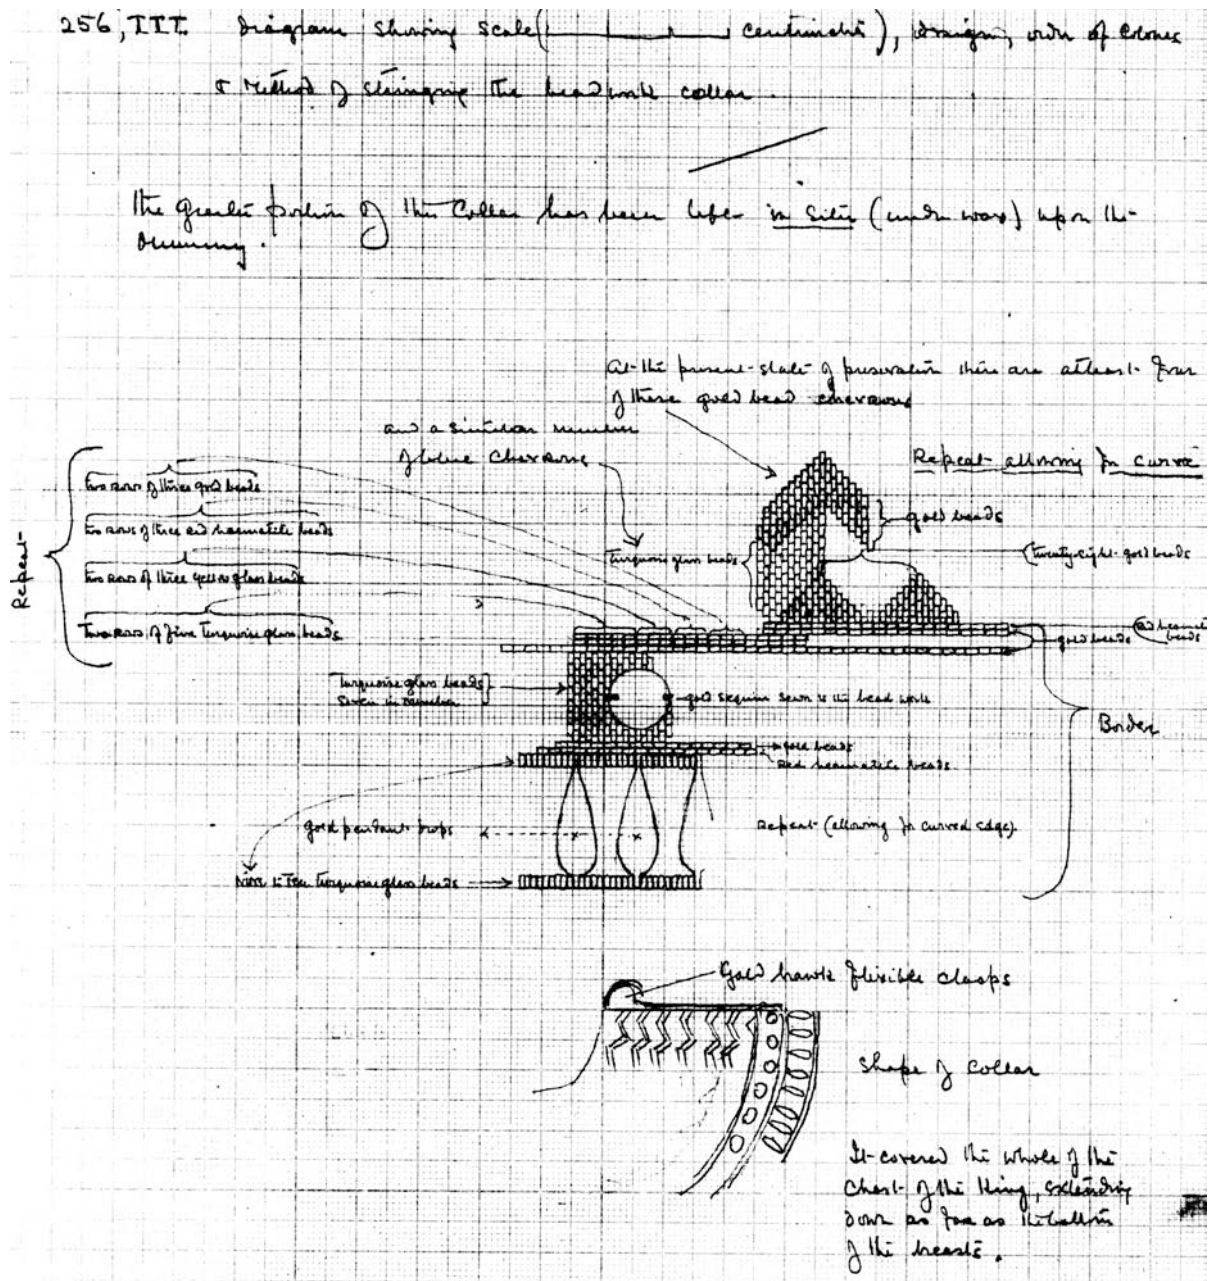 256, TTT. Diagram showing scale ( centimetres ), design, order of colours
& method of stringing the beadwork collar.
The greater portion of this collar has been left in situ (under wax) upon the
mummy.
At the present state of preservation there are at least four
of these gold bead chevrons
and a similar number
of blue chevrons
Repeat allowing for curve
two rows of three gold beads
two rows of three red haematite beads
two rows of three yellow glass beads
Two rows of five turquoise glass beads.
Repeat
gold beads
turquoise glass beads
(twenty-eight gold beads
red haematite
beads
gold beads
Turquoise glass beads
seven in number
gold sequin sewn to the bead work
Border
gold beads
Red haematite beads
gold pendant drops
Repeat (allowing for curved edge).
nine to ten turquoise glass beads
Gold hawk flexible clasps
Shape of collar
It covered the whole of the
chest of the King, extending
down as far as the bottom
of the breasts.